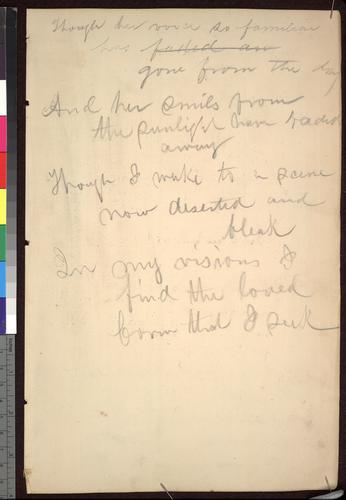 Though her voice so familiar
has failed an
gone from the day
And her smils from
the sunlight have faded
away
Though I wake to a scene
now deserted and
bleak
In my visions I
find the loved
form that I seek